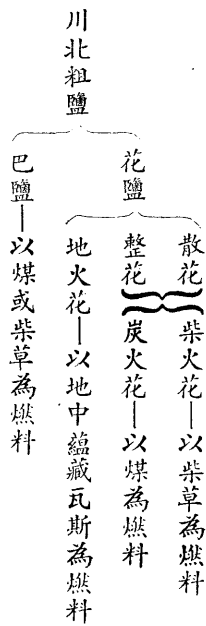 川北粗鹽
花鹽
散花
柴火花—以柴草為燃料
整花
炭火花—以煤為燃料
地火花—以地中蘊藏瓦斯為燃料
巴鹽—以煤或柴草為燃料